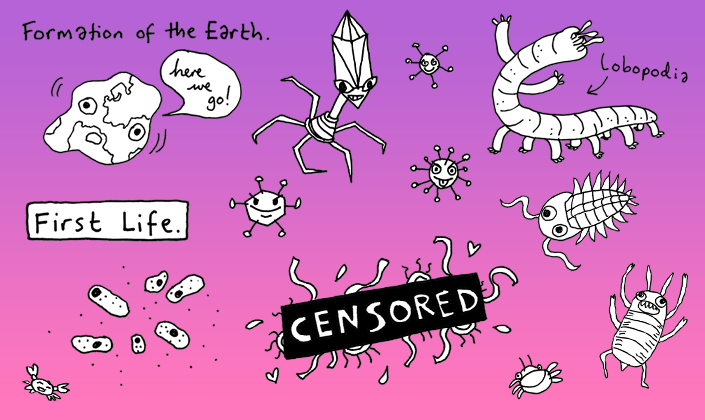 Formation of the Earth.
here
we
go!
Lobopodia
First Life.
CENSORED